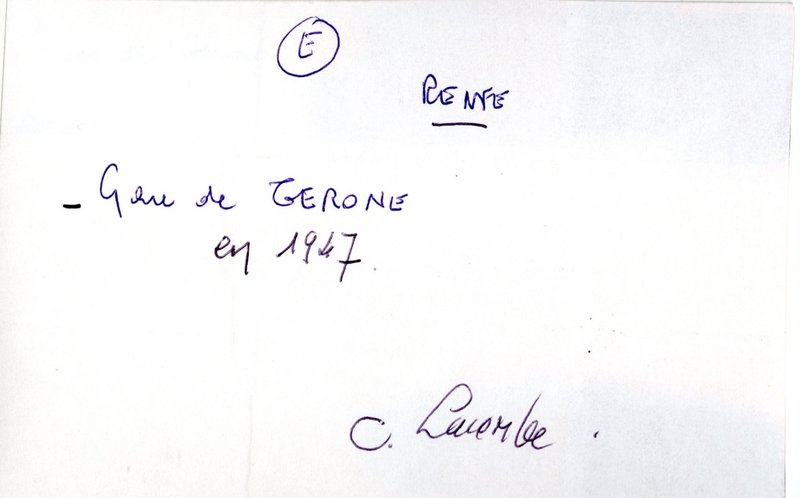 E
RENFE
- Gare de GERONE
en 1947.
C. Lacombe.